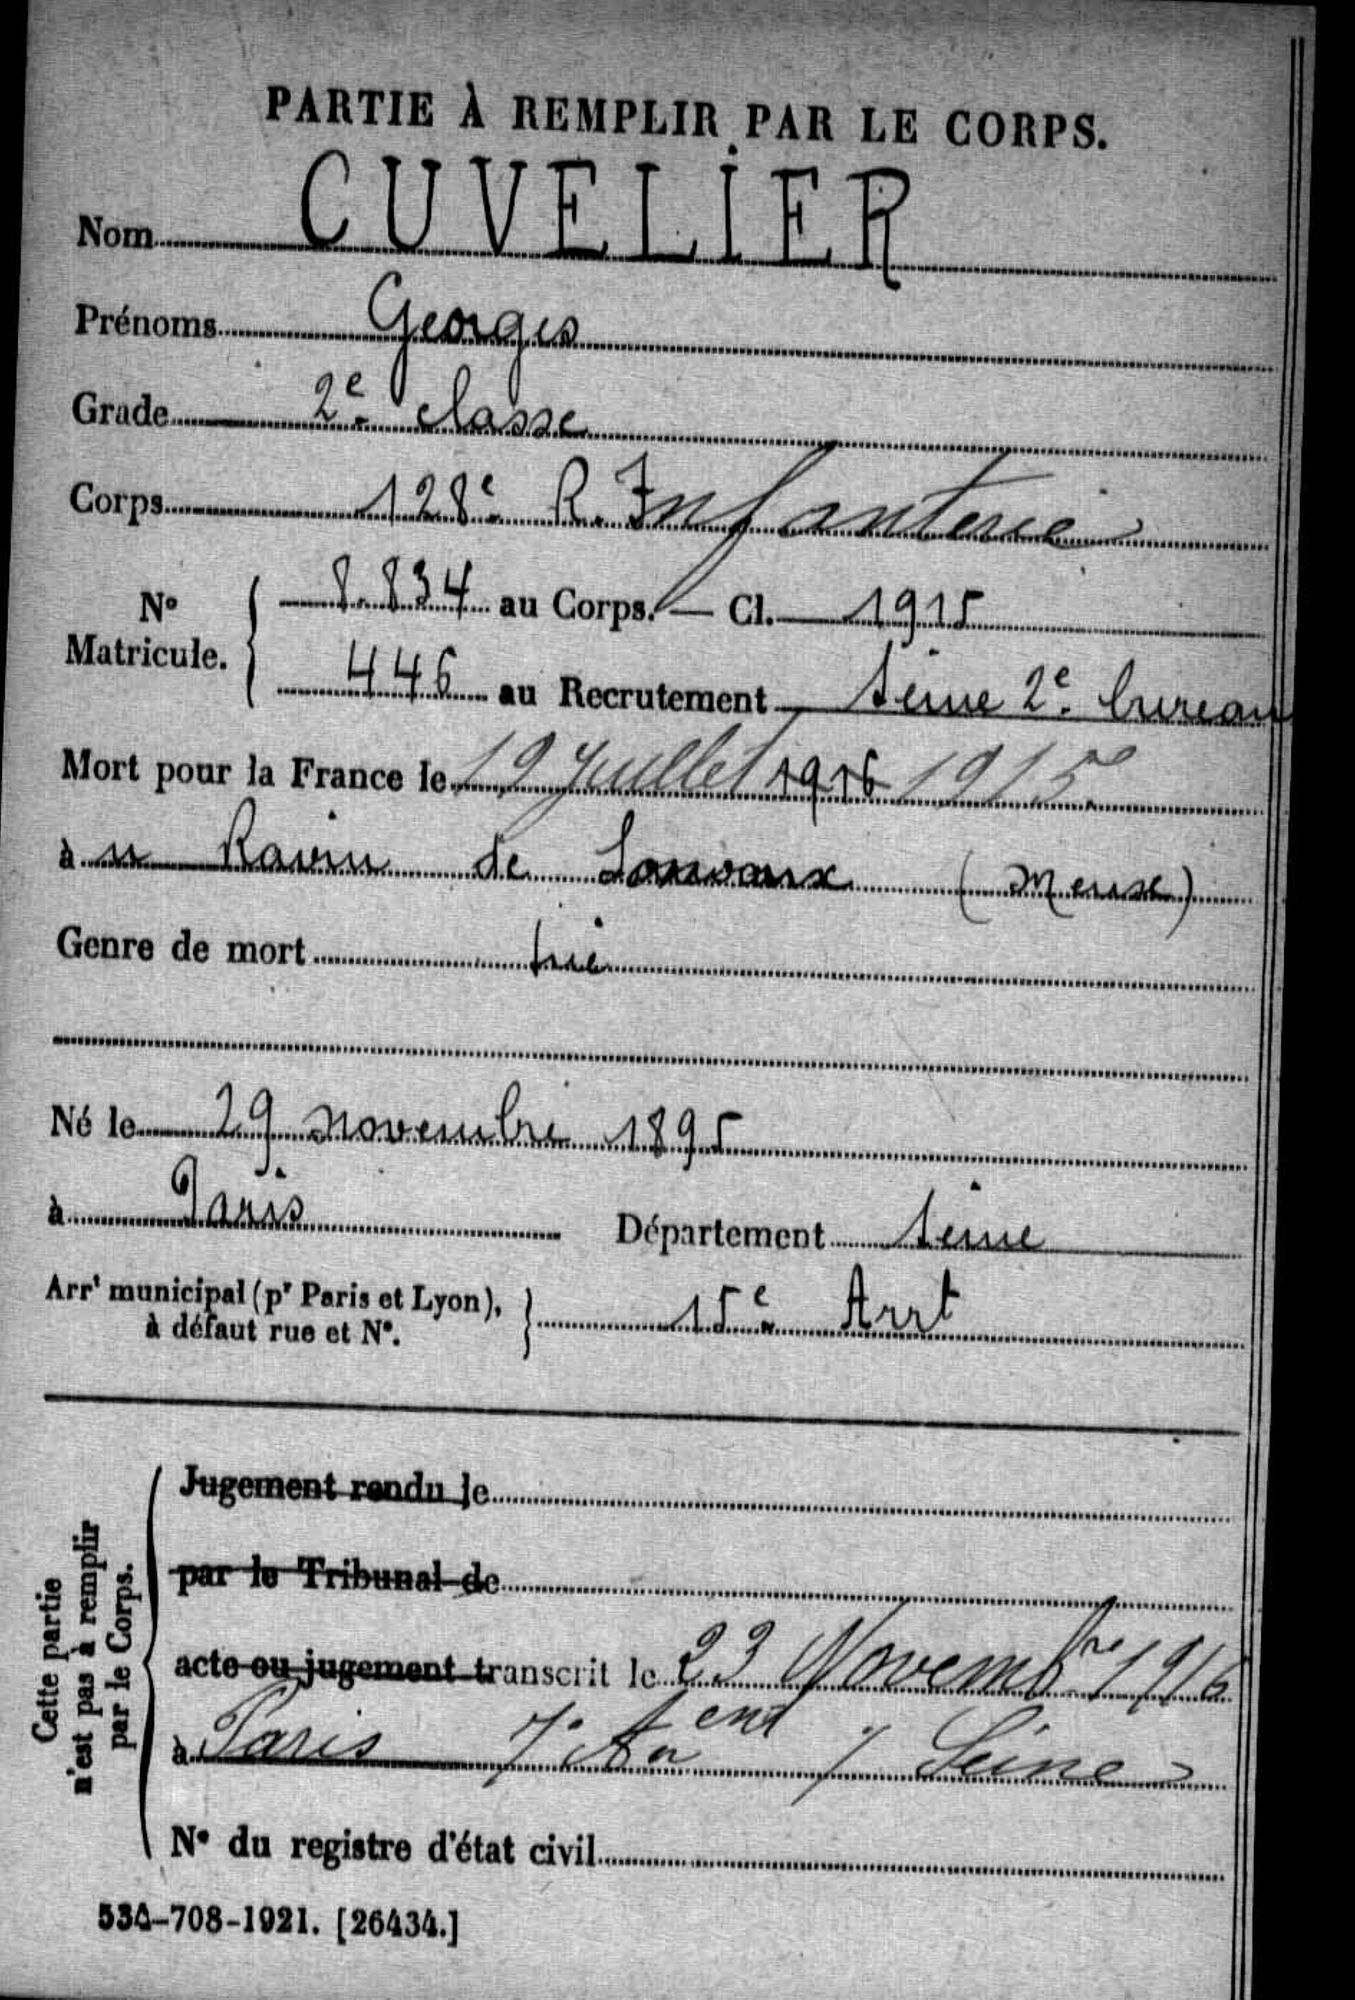 PARTIE À REMPLIR PAR LE CORPS.
Nom CUVELIER
Prénoms Georges
Grade 2e classe
Corps 128e R. Infanterie
No Matricule. 8.834 au Corps. — Cl. 1915
446 au Recrutement Seine 2e bureau
Mort pour la France le 19 juillet 1916 1915
à Ravin de (Meuse)
Genre de mort tué
Né le 29 novembre 1895
à Paris Département Seine
Arrt municipal (pr Paris et Lyon), à défaut rue et No. 15e Arrt
Cette partie n'est pas à remplir par le Corps.
Jugement rendu le
par le Tribunal de
acte ou jugement transcrit le 23 Novembre 1916
à Paris Seine
No du registre d'état civil
534-708-1921. [26434.]